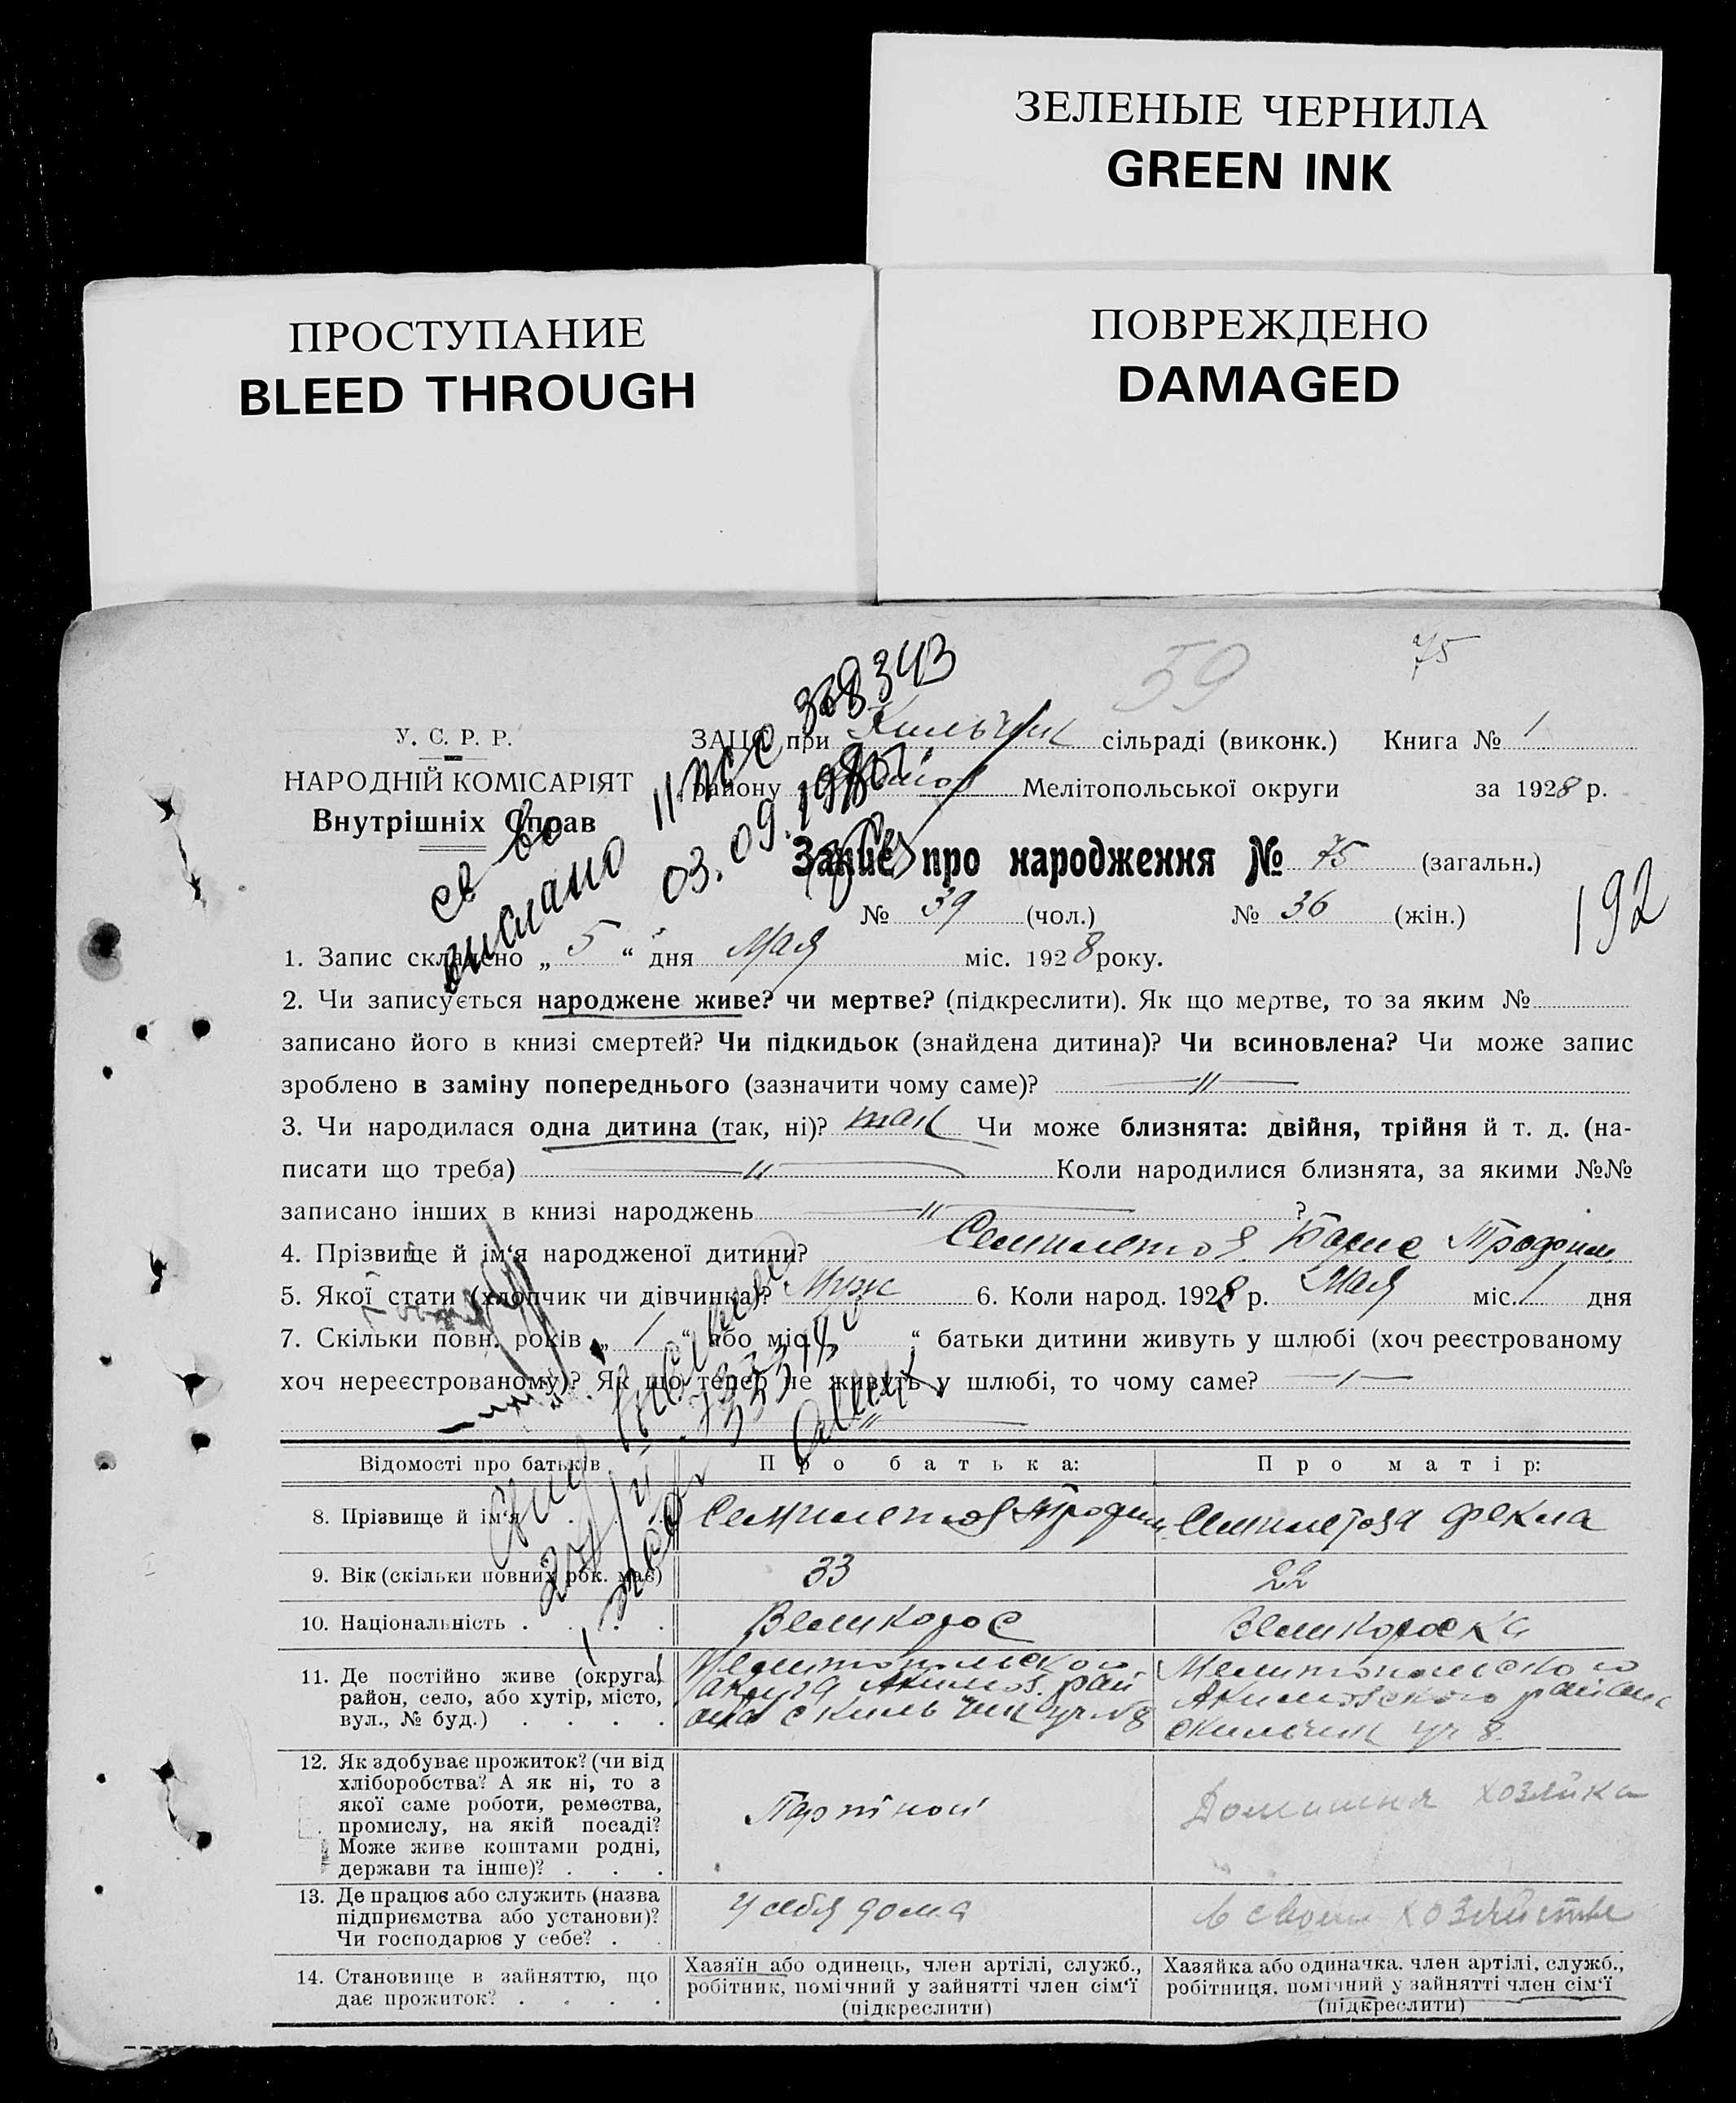 ЗЕЛЕНЫЕ ЧЕРНИЛА
GREEN INK
ПРОСТУПАНИЕ
BLEED THROUGH
ПОВРЕЖДЕНО
DAMAGED
75
59
У. С. Р. Р.
НАРОДНІЙ КОМІСАРІЯТ
Внутрішніх Справ
ЗАЦС при Кильчик сільраді (виконк.) Книга № 1
району Мелітопольської округи за 1928 р.
св во
выслано 11 жс 368343
03.09.1980
Запис про народження № 75 (загальн.)
№ 39 (чол.) № 36 (жін.)
192
1. Запис складено „ 5 “ дня Мая міс. 1928 року.
2. Чи записується народжене живе? чи мертве? (підкреслити). Як що мертве, то за яким №
записано його в книзі смертей? Чи підкидьок (знайдена дитина)? Чи всиновлена? Чи може запис
зроблено в заміну попереднього (зазначити чому саме)? —〃—
3. Чи народилася одна дитина (так, ні)? так Чи може близнята: двійня, трійня й т. д. (на-
писати що треба) —〃— Коли народилися близнята, за якими №№
записано інших в книзі народжень —〃— ?
4. Прізвище й ім‘я народженої дитини? Семилетов Борис Трофим
5. Якої стати (хлопчик чи дівчинка)? Муж 6. Коли народ. 1928 р. Мая міс. 1 дня
7. Скільки повн. років „ 1 “ або міс. “ батьки дитини живуть у шлюбі (хоч реєстрованому
хоч нереєстрованому)? Як що тепер не живуть у шлюбі, то чому саме? —〃—
—〃—
Відомості про батьків Про батька: Про матір:
8. Прізвище й ім‘я Семилетов Трофим Семилетова Фекла
9. Вік (скільки повних рок. має) 33 22
10. Національність . . . . Великорос Великороска
11. Де постійно живе (округа, район, село, або хутір, місто, вул., № буд.) . . . .
Мелитопольского
округа Акимов. рай
она с Кильчик уч №8
Мелитопольского
Акимовского района
с Кильчик уч 8.
12. Як здобуває прожиток? (чи від
хліборобства? А як ні, то з
якої саме роботи, ремества,
промислу, на якій посаді?
Може живе коштами родні,
держави та інше)? . . .
Портной
Домашня хозяйка
13. Де працює або служить (назва
підприємства або установи)?
Чи господарює у себе? .
У себя дома
в своем хозяйстве
14. Становище в зайняттю, що
дає прожиток? . . . .
Хазяїн або одинець, член артілі, служб.,
робітник, помічний у зайнятті член сім‘ї
(підкреслити)
Хазяйка або одиначка. член артілі, служб.,
робітниця, помічний у зайнятті член сім‘ї
(підкреслити)